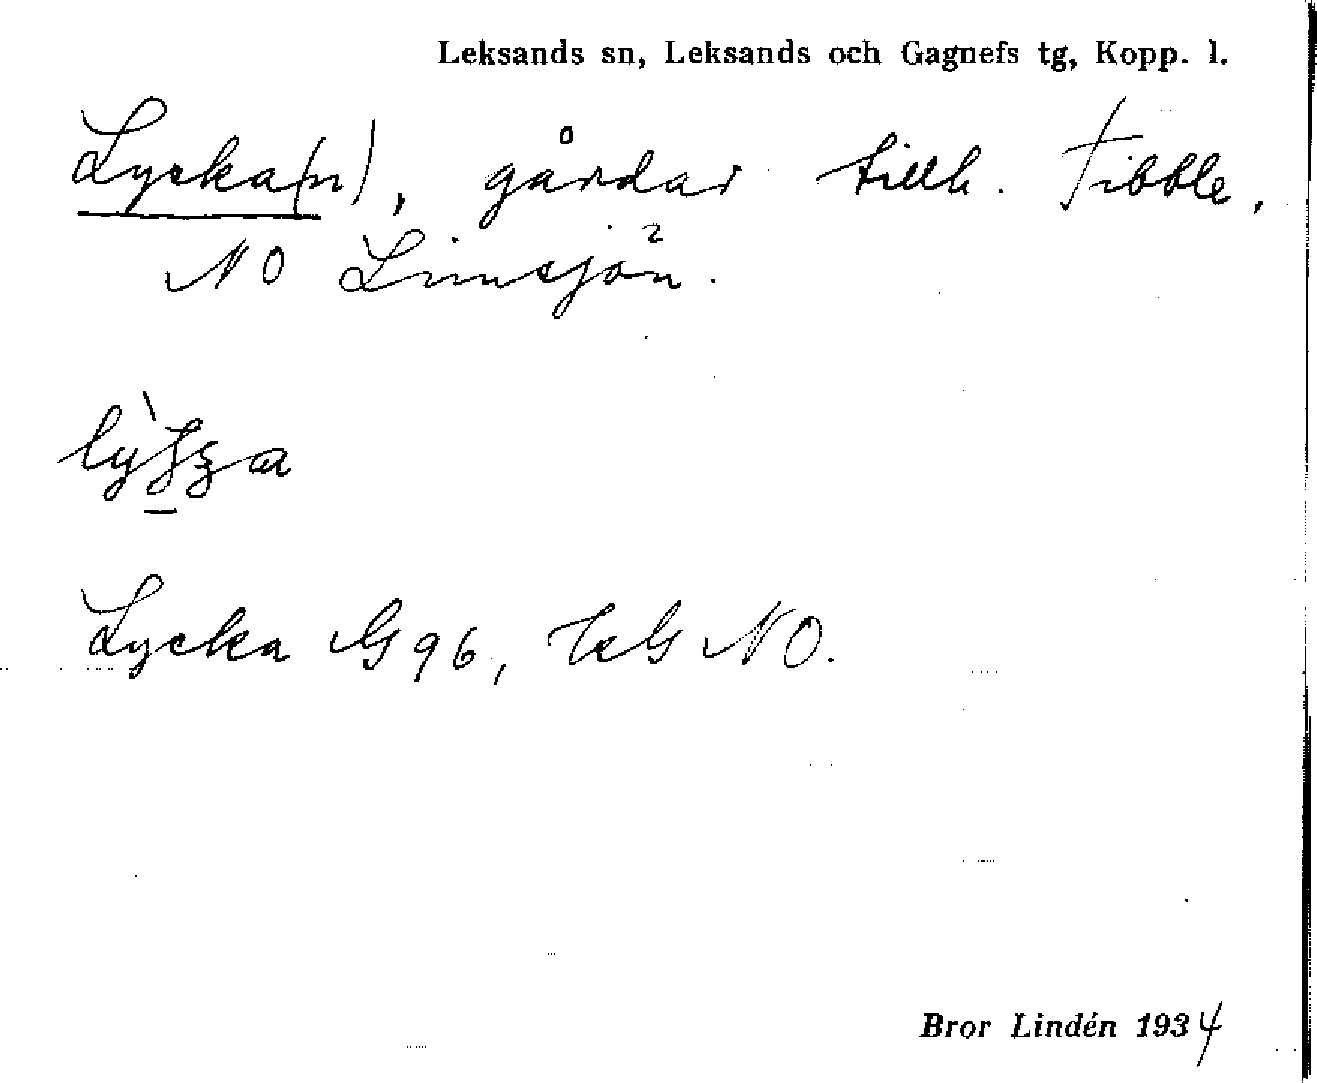 Leksands sn, Leksands och Gagnefs tg, Kopp. l.
Lycka(n), gårdar tillh. Tibble,
NO Limsjön.
Lycka G 96, NO.
Bror Lindén 1934